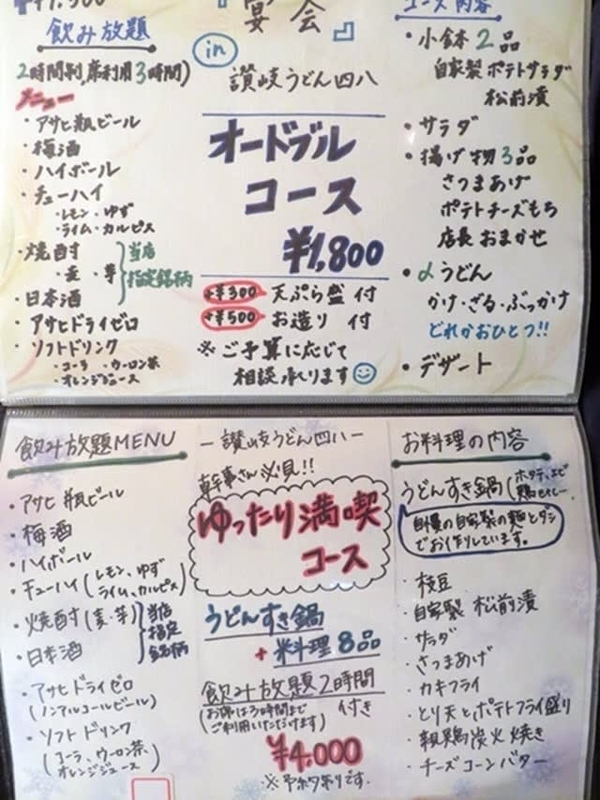 ¥1,500
飲み放題
2時間制(席利用3時間)
メニュー
・アサヒ瓶ビール
・梅酒
・ハイボール
・チューハイ
・レモン・ゆず
・ライム・カルピス
・焼酎
・麦・芋
・日本酒
当店
指定銘柄
・アサヒドライゼロ
・ソフトドリンク
・コーラ・ウーロン茶
・オレンジジュース
宴会』
in
讃岐うどん四八
オードブル
コース
¥1,800
+¥300 天ぷら盛 付
+¥500 お造り 付
※ご予算に応じて
相談承ります
コース内容
・小鉢2品
自家製ポテトサラダ
松前漬
・サラダ
・揚げ物3品
さつまあげ
ポテトチーズもち
店長おまかせ
・〆うどん
かけ・ざる・ぶっかけ
どれかおひとつ!!
・デザート
飲み放題MENU
・アサヒ瓶ビール
・梅酒
・ハイボール
・チューハイ(レモン、ゆず
ライム、カルピス)
・焼酎(麦・芋)
・日本酒
当店
指定
銘柄
・アサヒドライゼロ
(ノンアルコールビール)
・ソフトドリンク
(コーラ、ウーロン茶
オレンジジュース)
―讃岐うどん四八―
幹事さん必見!!
ゆったり満喫
コース
うどんすき鍋
+料理8品
飲み放題2時間
(お席は3時間まで
ご利用いただけます)
付き
¥4,000
※予約制です。
お料理の内容
うどんすき鍋(ホタテ、エビ
自慢の自家製の麺とダシ
でお作りしています。
・枝豆
・自家製 松前漬
・サラダ
・さつまあげ
・カキフライ
・とり天とポテトフライ盛り
・親鶏炭火焼き
・チーズコーンバター